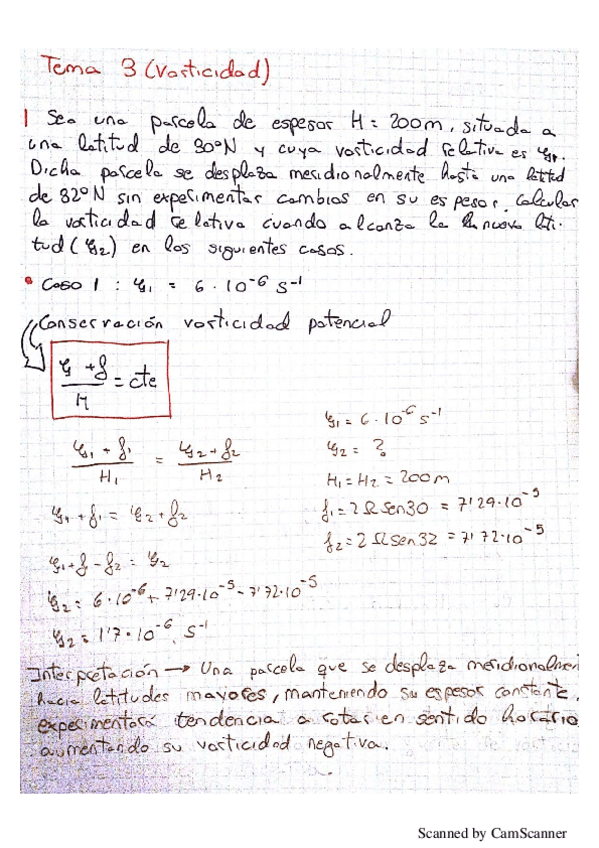 Tema 3 (Vorticidad)
1 Sea una parcela de espesor H = 200m, situada a
una latitud de 30ºN y cuya vorticidad relativa es ζ1.
Dicha parcela se desplaza meridionalmente hasta una latitud
de 32ºN sin experimentar cambios en su espesor. Calcular
la vorticidad relativa cuando alcanza la nueva lati-
tud (ζ2) en los siguientes casos.
• Caso 1 : ζ1 = 6 · 10^-6 s^-1
Conservación vorticidad potencial
(ζ + f)/H = cte
(ζ1 + f1)/H1 = (ζ2 + f2)/H2
ζ1 + f1 = ζ2 + f2
ζ1 + f - f2 = ζ2
ζ2 = 6·10^-6 + 7'29·10^-5 - 7'72·10^-5
ζ2 = 1'7·10^-6 s^-1
ζ1 = 6·10^-6 s^-1
ζ2 = ?
H1 = H2 = 200m
f1 = 2 Ω sen30 = 7'29·10^-5
f2 = 2 Ω sen 32 = 7'72·10^-5
Interpretación → Una parcela que se desplaza meridionalmen
hacia latitudes mayores, manteniendo su espesor constante,
experimentará tendencia a rotar en sentido horario
aumentando su vorticidad negativa.
Scanned by CamScanner